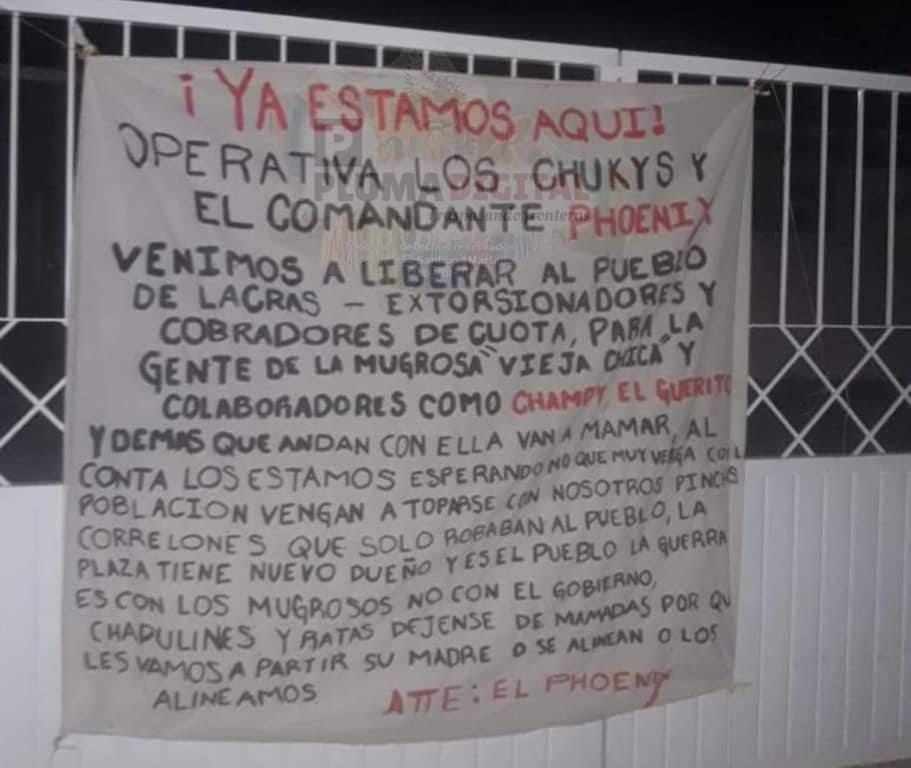 ¡YA ESTAMOS AQUI!
OPERATIVA LOS CHUKYS Y
EL COMANDANTE PHOENIX
VENIMOS A LIBERAR AL PUEBLO
DE LACRAS - EXTORSIONADORES Y
COBRADORES DE CUOTA, PARA LA
GENTE DE LA MUGROSA "VIEJA CHICA" Y
COLABORADORES COMO CHAMPY, EL GUERITO
Y DEMAS QUE ANDAN CON ELLA VAN A MAMAR, AL
CONTA LOS ESTAMOS ESPERANDO NO QUE MUY VERGA CON L
POBLACION VENGAN A TOPARSE CON NOSOTROS PINCHES
CORRELONES QUE SOLO ROBABAN AL PUEBLO, LA
PLAZA TIENE NUEVO DUEÑO Y ES EL PUEBLO LA GUERRA
ES CON LOS MUGROSOS NO CON EL GOBIERNO,
CHAPULINES Y RATAS DEJENSE DE MAMADAS POR QU
LES VAMOS A PARTIR SU MADRE O SE ALINEAN O LOS
ALINEAMOS
ATTE: EL PHOENIX
PLUMA DIGITAL